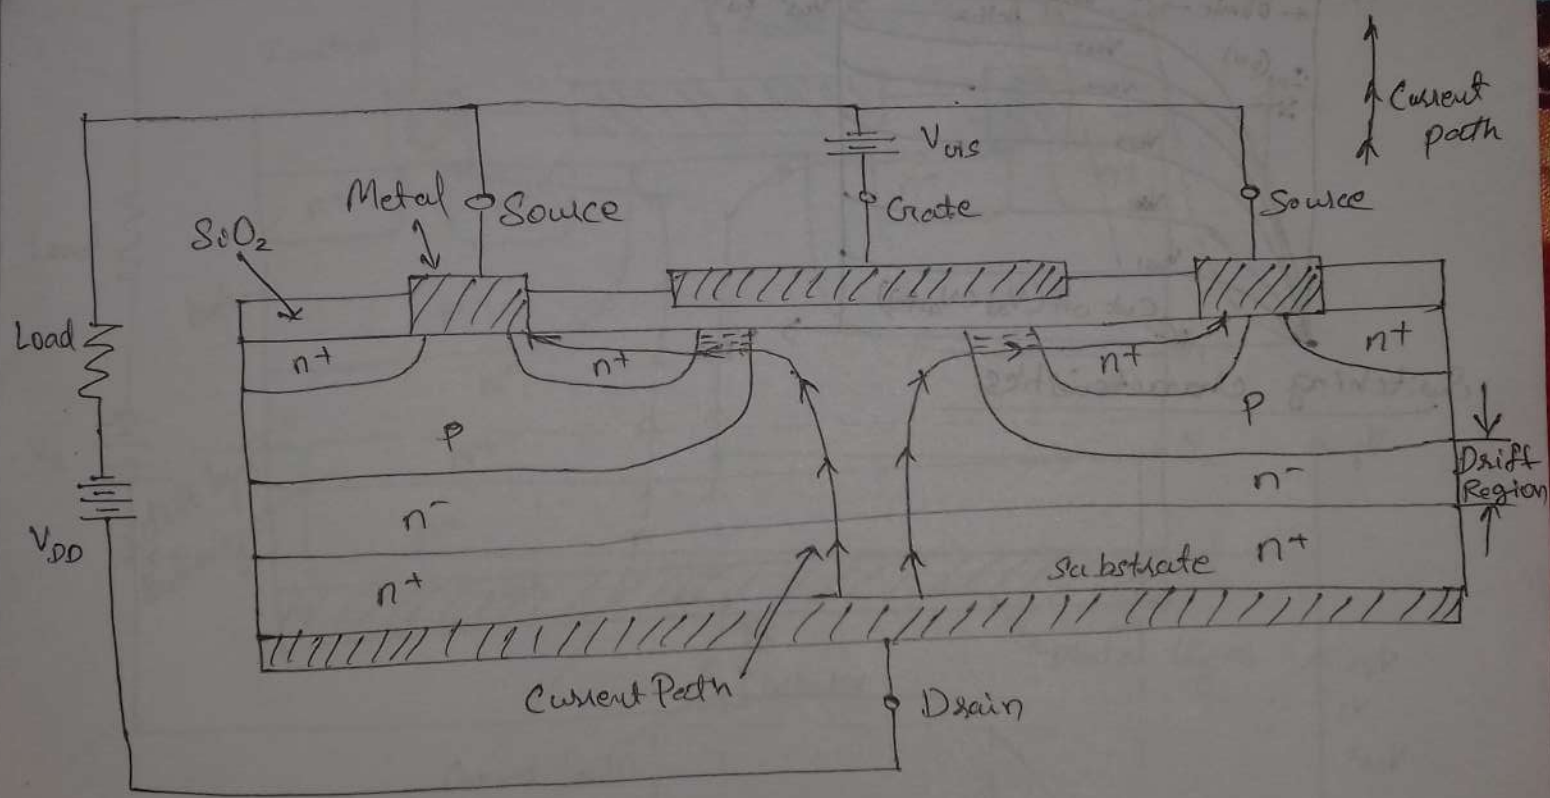 Current
path
VGS
Metal
Source
Gate
Source
SiO2
Load
n+
n+
n+
n+
P
P
Drift
Region
n-
n-
VDD
n+
Substrate
n+
Current Path
Drain